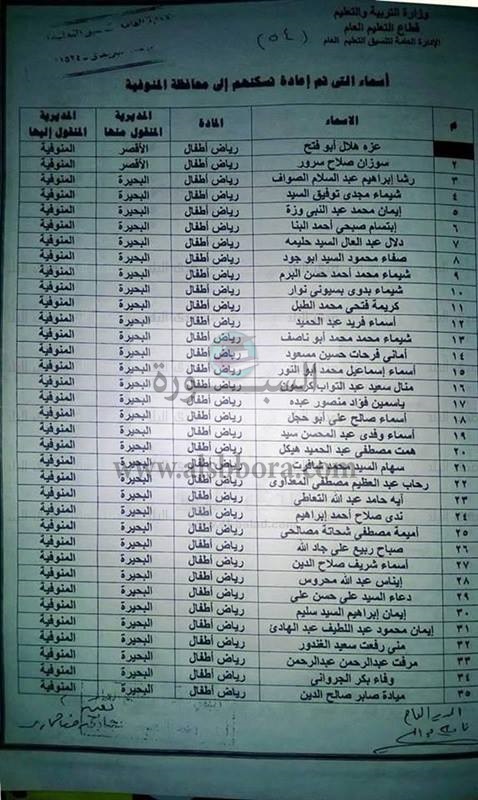 وزارة التربية والتعليم
قطاع التعليم العام
الإدارة العامة لتنسيق التعليم العام
(٥٤)
أسماء التى تم إعادة تسكنهم إلى محافظة المنوفية
م الاسماء المادة المديرية المنقول منها المديرية المنقول إليها
عزه هلال أبو فتح رياض أطفال الأقصر المنوفية
٢ سوزان صلاح سرور رياض أطفال الأقصر المنوفية
٣ رشا إبراهيم عبد السلام الصواف رياض أطفال البحيرة المنوفية
٤ شيماء مجدى توفيق السيد رياض أطفال البحيرة المنوفية
٥ إيمان محمد عبد النبى وزة رياض أطفال البحيرة المنوفية
٦ إبتسام صبحى أحمد البنا رياض أطفال البحيرة المنوفية
٧ دلال عبد العال السيد حليمه رياض أطفال البحيرة المنوفية
٨ صفاء محمود السيد ابو جود رياض أطفال البحيرة المنوفية
٩ شيماء محمد أحمد حسن البرم رياض أطفال البحيرة المنوفية
١٠ شيماء بدوى بسيونى نوار رياض أطفال البحيرة المنوفية
١١ كريمة فتحى محمد الطبل رياض أطفال البحيرة المنوفية
١٢ أسماء فريد عبد الحميد رياض أطفال البحيرة المنوفية
١٣ شيماء محمد محمد أبو ناصف رياض أطفال البحيرة المنوفية
١٤ أمانى فرحات حسين مسعود رياض أطفال البحيرة المنوفية
١٥ أسماء إسماعيل محمد إبو النور رياض أطفال البحيرة المنوفية
١٦ منال سعيد عبد التواب رياض أطفال البحيرة المنوفية
١٧ ياسمين فؤاد منصور عبده رياض أطفال البحيرة المنوفية
١٨ أسماء صالح على أبو حجل رياض أطفال البحيرة المنوفية
١٩ أسماء وفدى عبد المحسن سيد رياض أطفال البحيرة المنوفية
٢٠ همت مصطفى عبد الحميد هيكل رياض أطفال البحيرة المنوفية
٢١ سهام السيد رياض أطفال البحيرة المنوفية
٢٢ رحاب عبد العظيم مصطفى المعداوى رياض أطفال البحيرة المنوفية
٢٣ أيه حامد عبد الله التعاطى رياض أطفال البحيرة المنوفية
٢٤ ندى صلاح أحمد إبراهيم رياض أطفال البحيرة المنوفية
٢٥ أميمة مصطفى شحاتة مصالحى رياض أطفال البحيرة المنوفية
٢٦ صباح ربيع على جاد الله رياض أطفال البحيرة المنوفية
٢٧ أسماء شريف صلاح الدين رياض أطفال البحيرة المنوفية
٢٨ إيناس عبد الله محروس رياض أطفال البحيرة المنوفية
٢٩ دعاء السيد على حسن على رياض أطفال البحيرة المنوفية
٣٠ إيمان إبراهيم السيد سليم رياض أطفال البحيرة المنوفية
٣١ إيمان محمود عبد اللطيف عبد الهادئ رياض أطفال البحيرة المنوفية
٣٢ منى رفعت سعيد الغندور رياض أطفال البحيرة المنوفية
٣٣ مرفت عبدالرحمن عبدالرحمن رياض أطفال البحيرة المنوفية
٣٤ وفاء بكر الجروانى رياض أطفال البحيرة المنوفية
٣٥ ميادة صابر صالح الدين رياض أطفال البحيرة المنوفية
السبورة
www.alsbbora.com